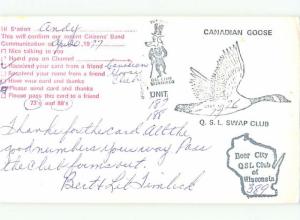 Hi Station Andy
This will confirm our recent Citizens' Band
Communication 19 77
Nice talking to you
Heard you on Channel
Received your card from a friend Canadian
Received your name from a friend Goose
Have your card and thanks Club
Please send card and thanks
Please pass the card to a friend
73's and 88's
CANADIAN GOOSE
UNIT.
188
Q. S. L. SWAP CLUB
Thanks for the card All the
good numbers your way Pass
the Club forms out.
Bert & Lit
Beer City
QSL Club
of
Wisconsin
389